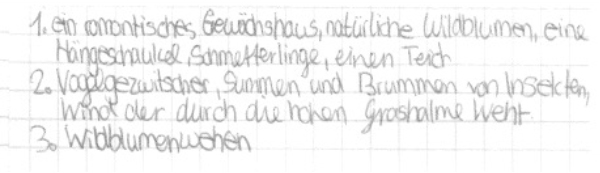 1. ein romantisches Gewächshaus, natürliche Wildblumen, eine
Hängeschaukel, Schmetterlinge, einen Teich
2. Vogelgezwitscher, Summen und Brummen von Insekten,
Wind der durch die hohen Grashalme weht
3. Wildblumenwehen